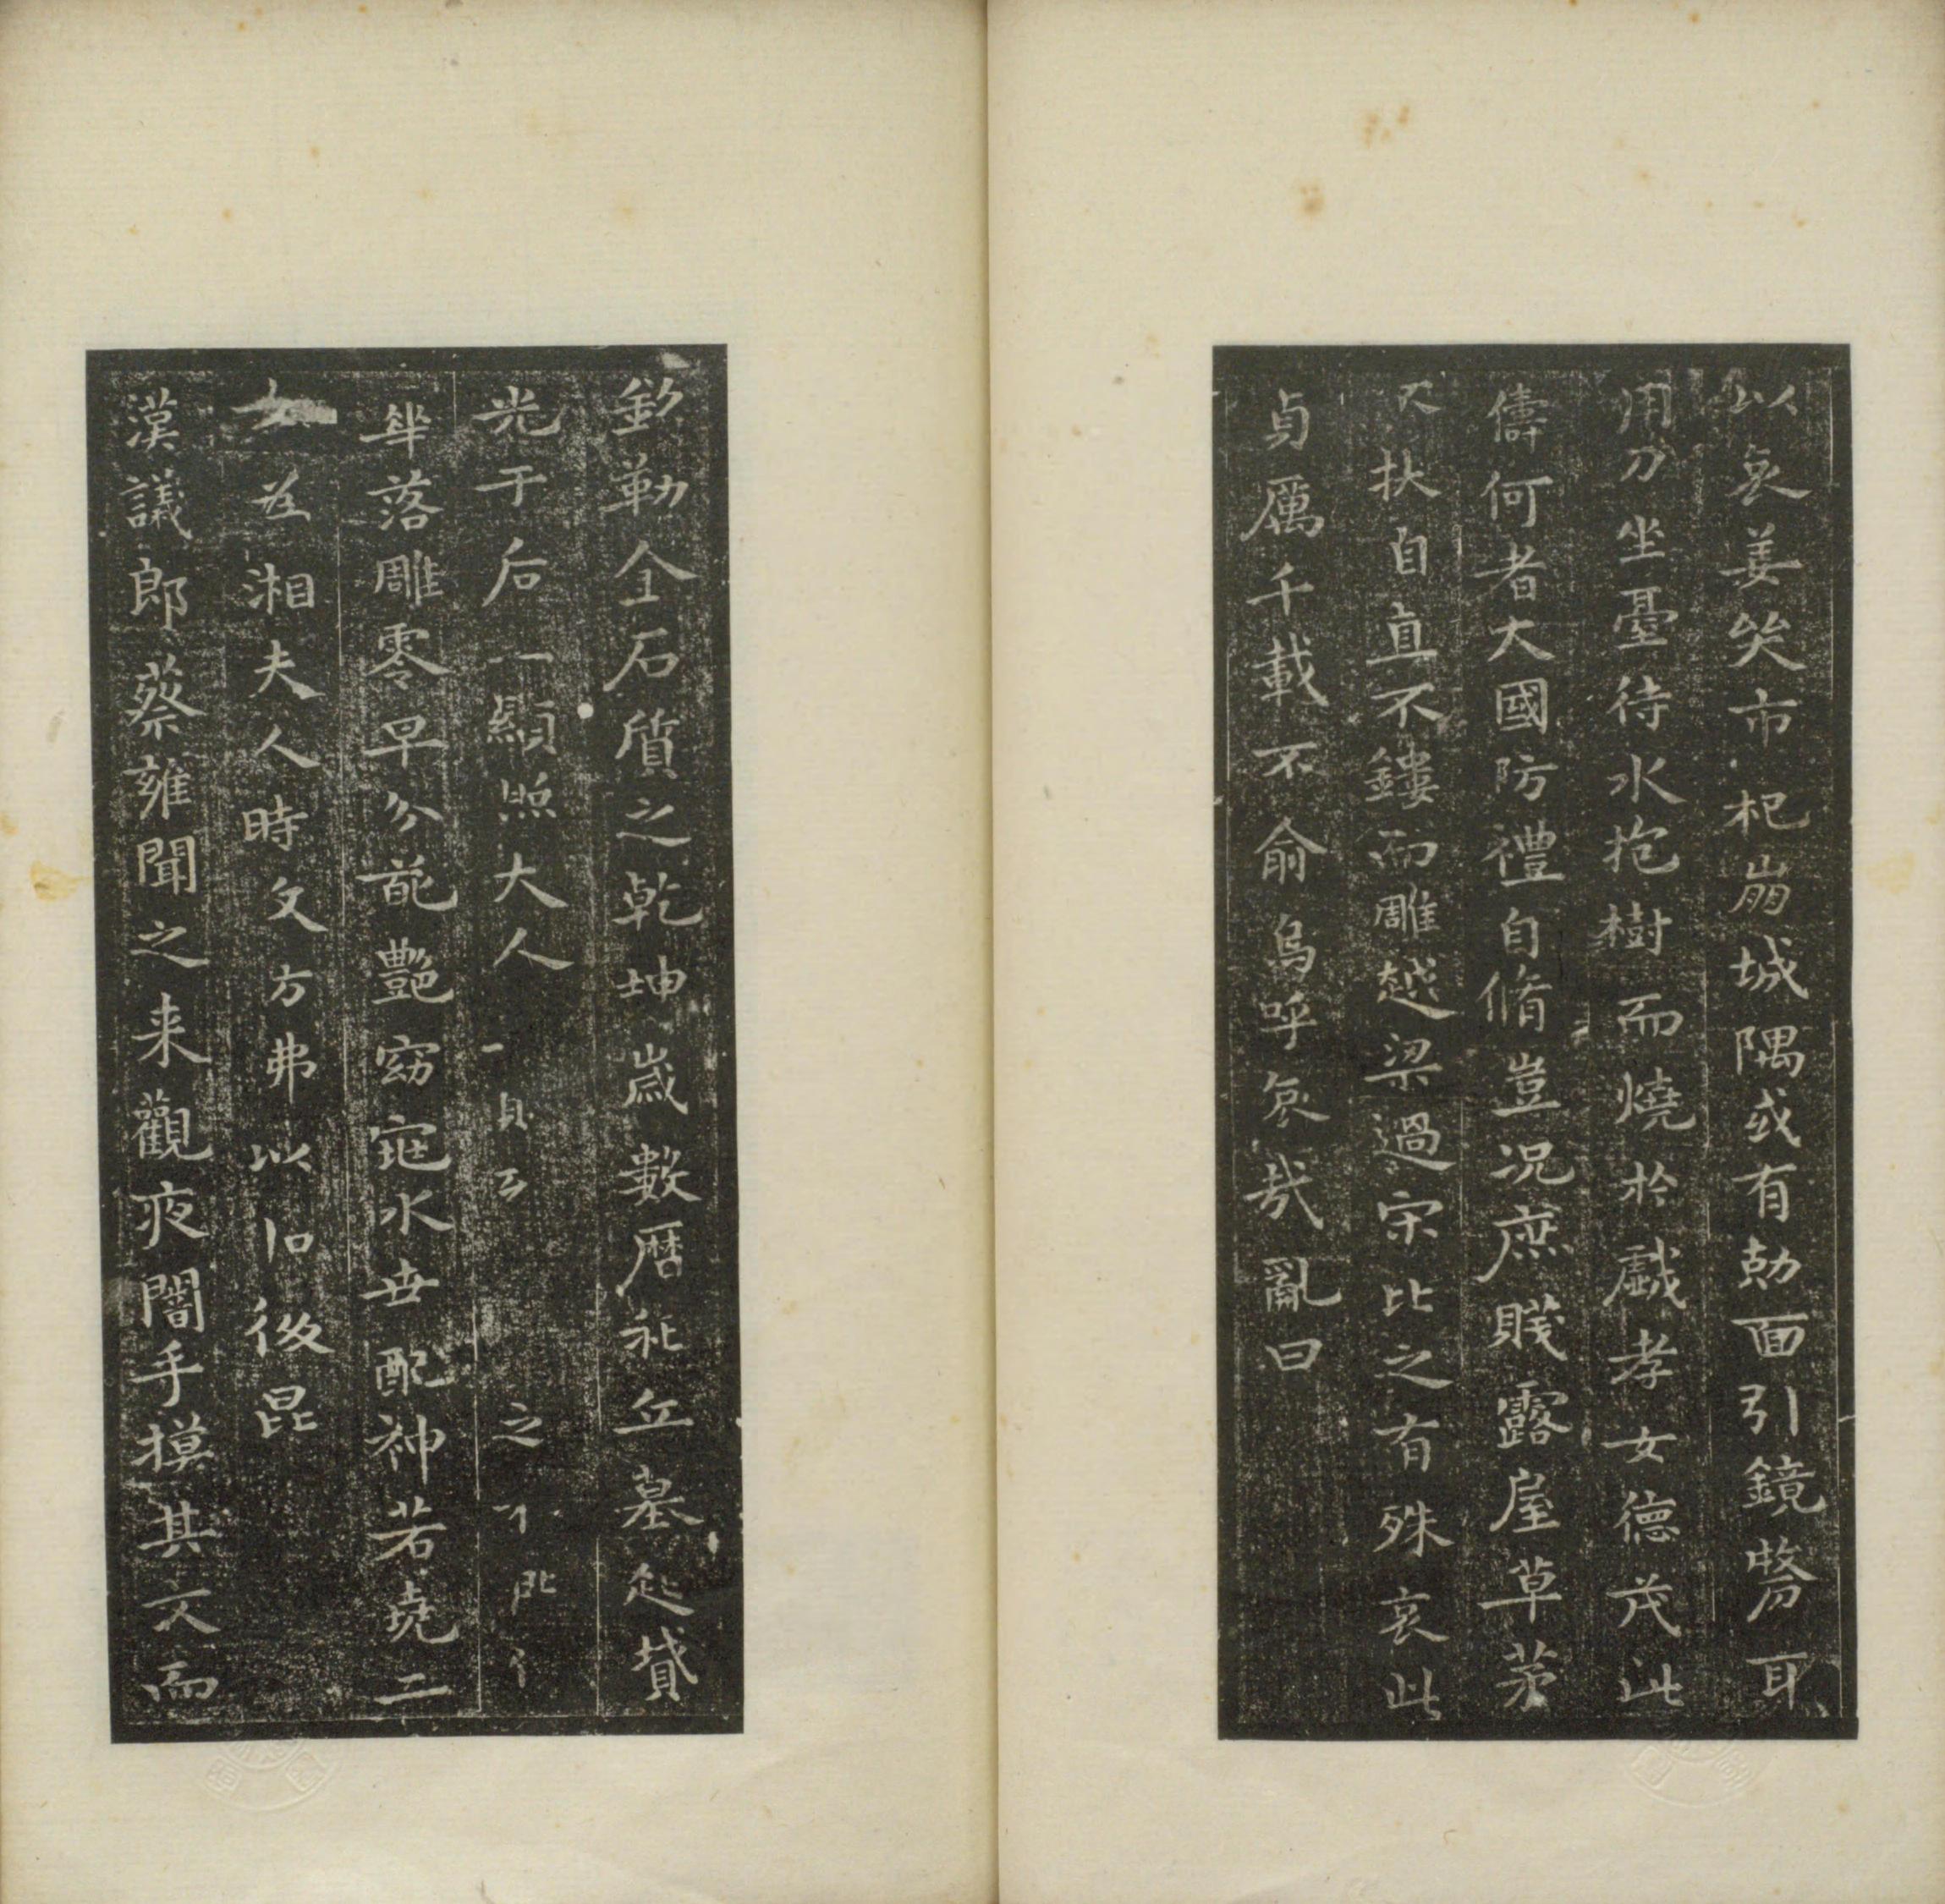 以哀姜哭市杞崩城隅或有勀面引鏡剺耳
用刀坐臺待水抱樹而燒於戯孝女德茂此
儔何者大國防禮自脩豈况庶賤露屋草茅
不扶自直不鏤而雕越梁過宋比之有殊哀此
貞厲千載不俞烏呼哀哉亂曰
銘勒金石質之乾坤歲數曆祀丘墓起墳
光于后顯照大人之
華落雕零早分葩艷窈窕永世配神若堯二
女為湘夫人時文方弗以後昆
漢議郎蔡雍聞之来觀夜闇手摸其文而